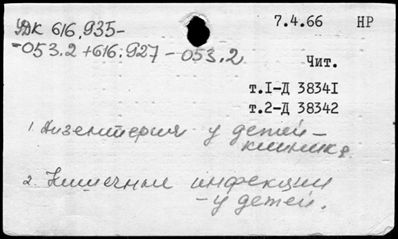 УДК 616,935-
-053.2+616.927-053.2
7.4.66 НР
Чит.
т.1-Д 38341
т.2-Д 38342
1. Дизентерия у детей-
клиника.
2. Кишечные инфекции
-у детей.